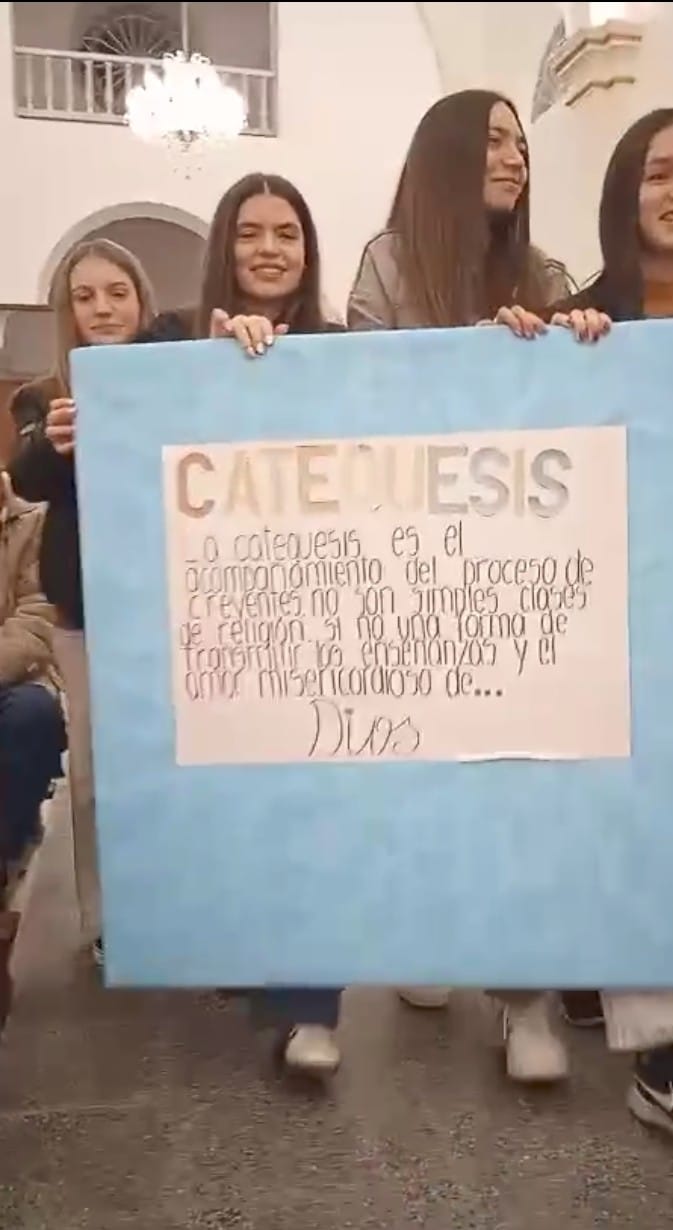 CATEQUESIS
La catequesis es el
acompañamiento del proceso de
creyentes. no son simples clases
de religión. si no una forma de
transmitir las enseñanzas y el
amor misericordioso de...
Dios